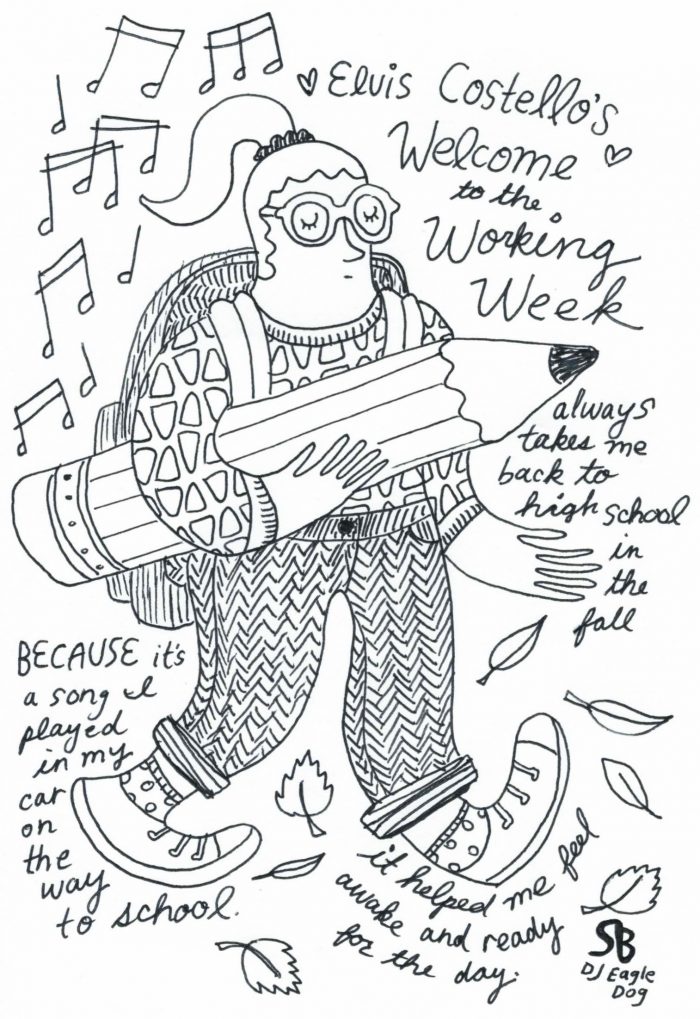 Elvis Costello's
Welcome
to the
Working
Week
always
takes me
back to
high school
in
the
fall
BECAUSE it's
a song I
played
in my
car
on
the
way
to school.
it helped me feel
awake and ready
for the day.
SB
DJ Eagle
Dog